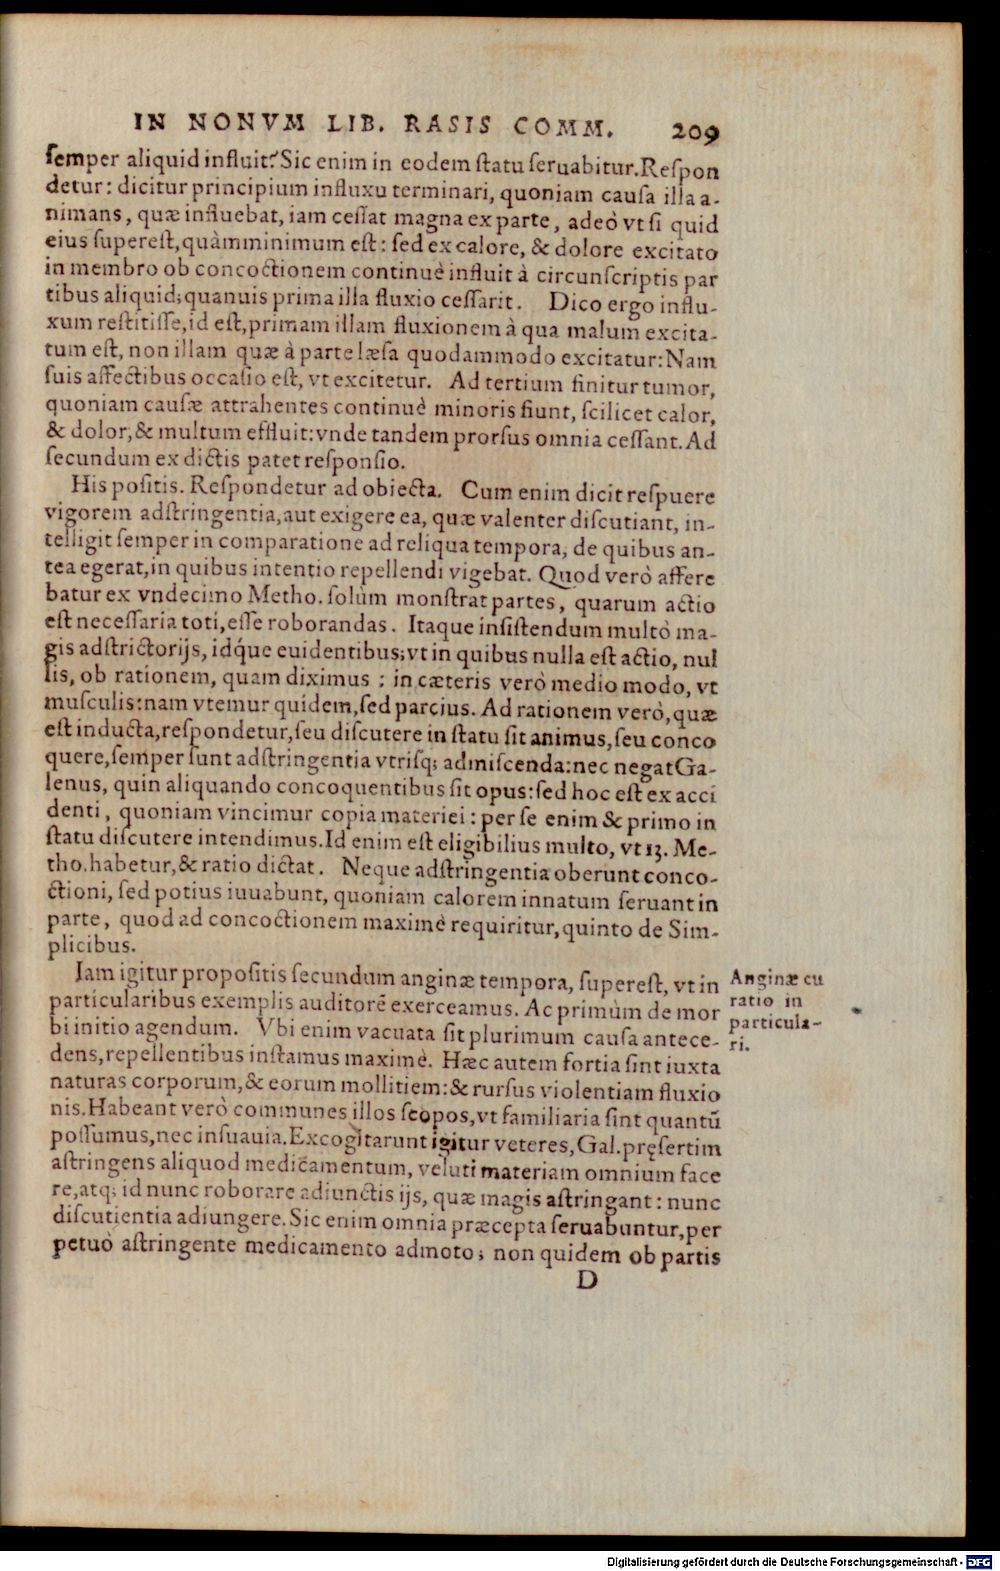 IN NONVM LIB. RASIS COMM. 209
ſemper aliquid influit? Sic enim in eodem ſtatu ſeruabitur. Reſpon
detur: dicitur principium influxu terminari, quoniam cauſa illa a-
nimans, quæ influebat, iam ceſſat magna ex parte, adeò vt ſi quid
eius ſupereſt, quàm minimum eſt: ſed ex calore, & dolore excitato
in membro ob concoctionem continuè influit à circunſcriptis par
tibus aliquid; quanuis prima illa fluxio ceſſarit. Dico ergo influ-
xum reſtitiſſe, id eſt, primam illam fluxionem à qua malum excita-
tum eſt, non illam quæ à parte læſa quodammodo excitatur: Nam
ſuis affectibus occaſio eſt, vt excitetur. Ad tertium finitur tumor,
quoniam cauſæ attrahentes continuè minoris fiunt, ſcilicet calor,
& dolor, & multum effluit: vnde tandem prorſus omnia ceſſant. Ad
ſecundum ex dictis patet reſponſio.
His poſitis. Reſpondetur ad obiecta. Cum enim dicit reſpuere
vigorem adſtringentia, aut exigere ea, quæ valenter diſcutiant, in-
telligit ſemper in comparatione ad reliqua tempora, de quibus an-
tea egerat, in quibus intentio repellendi vigebat. Quod verò affere
batur ex vndecimo Metho. ſolùm monſtrat partes, quarum actio
eſt neceſſaria toti, eſſe roborandas. Itaque inſiſtendum multò ma-
gis adſtrictorijs, idq́ue euidentibus; vt in quibus nulla eſt actio, nul
lis, ob rationem, quam diximus: in cæteris verò medio modo, vt
muſculis: nam vtemur quidem, ſed parcius. Ad rationem verò, quæ
eſt inducta, reſpondetur, ſeu diſcutere in ſtatu ſit animus, ſeu conco
quere, ſemper ſunt adſtringentia vtriſq; admiſcenda: nec negat Ga-
lenus, quin aliquando concoquentibus ſit opus: ſed hoc eſt ex acci
denti, quoniam vincimur copia materiei: per ſe enim & primo in
ſtatu diſcutere intendimus. Id enim eſt eligibilius multo, vt 13. Me-
tho. habetur, & ratio dictat. Neque adſtringentia oberunt conco-
ctioni, ſed potius iuuabunt, quoniam calorem innatum ſeruant in
parte, quod ad concoctionem maximè requiritur, quinto de Sim-
plicibus.
Iam igitur propoſitis ſecundum anginæ tempora, ſupereſt, vt in
particularibus exemplis auditorē exerceamus. Ac primùm de mor
bi initio agendum. Vbi enim vacuata ſit plurimum cauſa antece-
dens, repellentibus inſtamus maximè. Hæc autem fortia ſint iuxta
naturas corporum, & eorum mollitiem: & rurſus violentiam fluxio
nis. Habeant verò communes illos ſcopos, vt familiaria ſint quantū
poſſumus, nec inſuauia. Excogitarunt igitur veteres, Gal. pręſertim
aſtringens aliquod medicamentum, veluti materiam omnium face
re, atq; id nunc roborare adiunctis ijs, quæ magis aſtringant: nunc
diſcutientia adiungere. Sic enim omnia præcepta ſeruabuntur, per
petuò aſtringente medicamento admoto; non quidem ob partis
D
Anginæ cu
ratio in
particula-
ri.
Digitalisierung gefördert durch die Deutsche Forschungsgemeinschaft - DFG